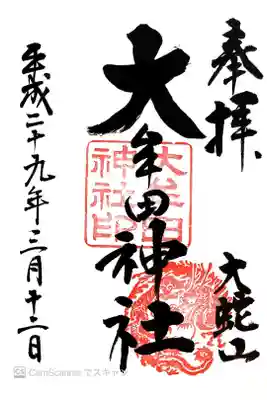 奉拝
大蛇山
大牟田神社
大牟田
神社印
平成二十九年三月十二日
CS CamScanner でスキャン